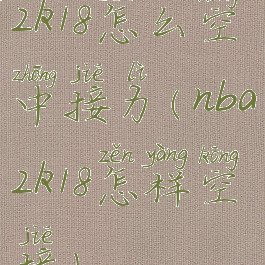 2k18怎么空
zhōng jiē lì
中接力(nba
zěn yàng kōng
2k18怎样空
jiē
接)